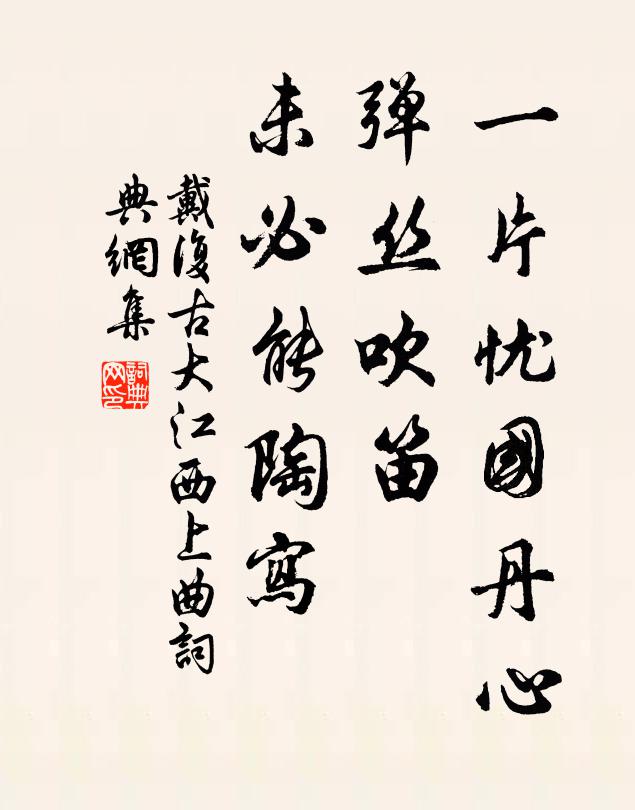 一片忧國丹心
弹丝吹笛
未必能陶寫
戴復古大江西上曲詞
典網集
詞典網印